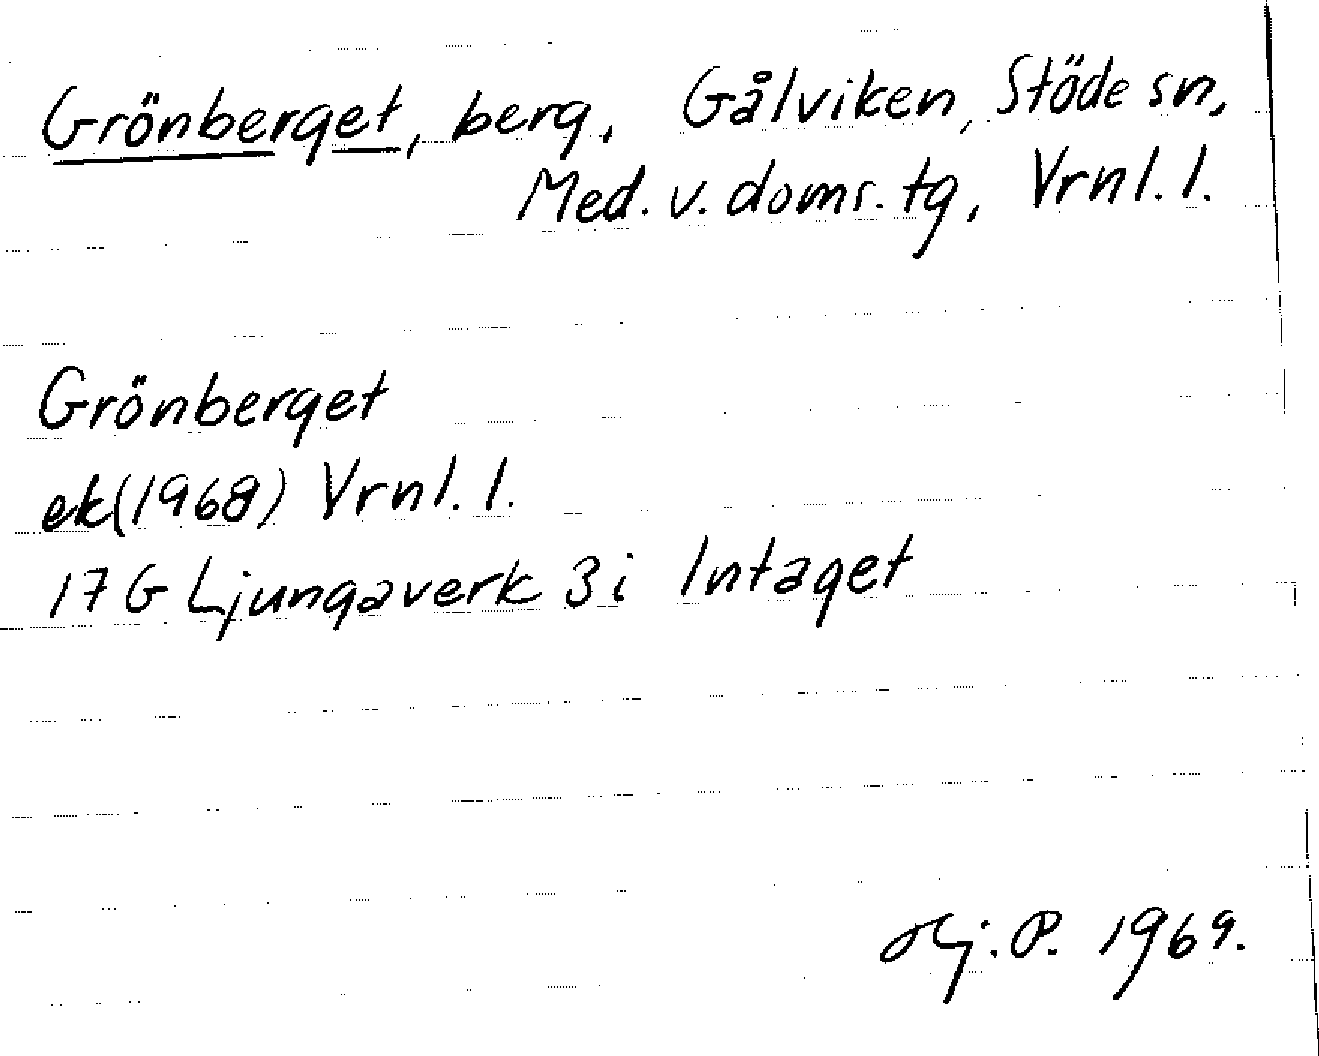 Grönberget, berg, Gålviken, Stöde sn,
Med. v. doms. tg, Vrnl. l.
Grönberget
ek(1968) Vrnl. l.
17 G Ljungaverk 3i Intaget
Hj. P. 1969.